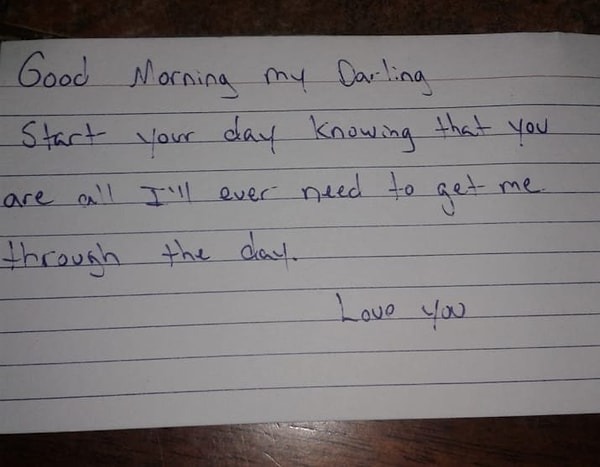 Good Morning my Darling
Start your day knowing that you
are all I'll ever need to get me
through the day.
Love you